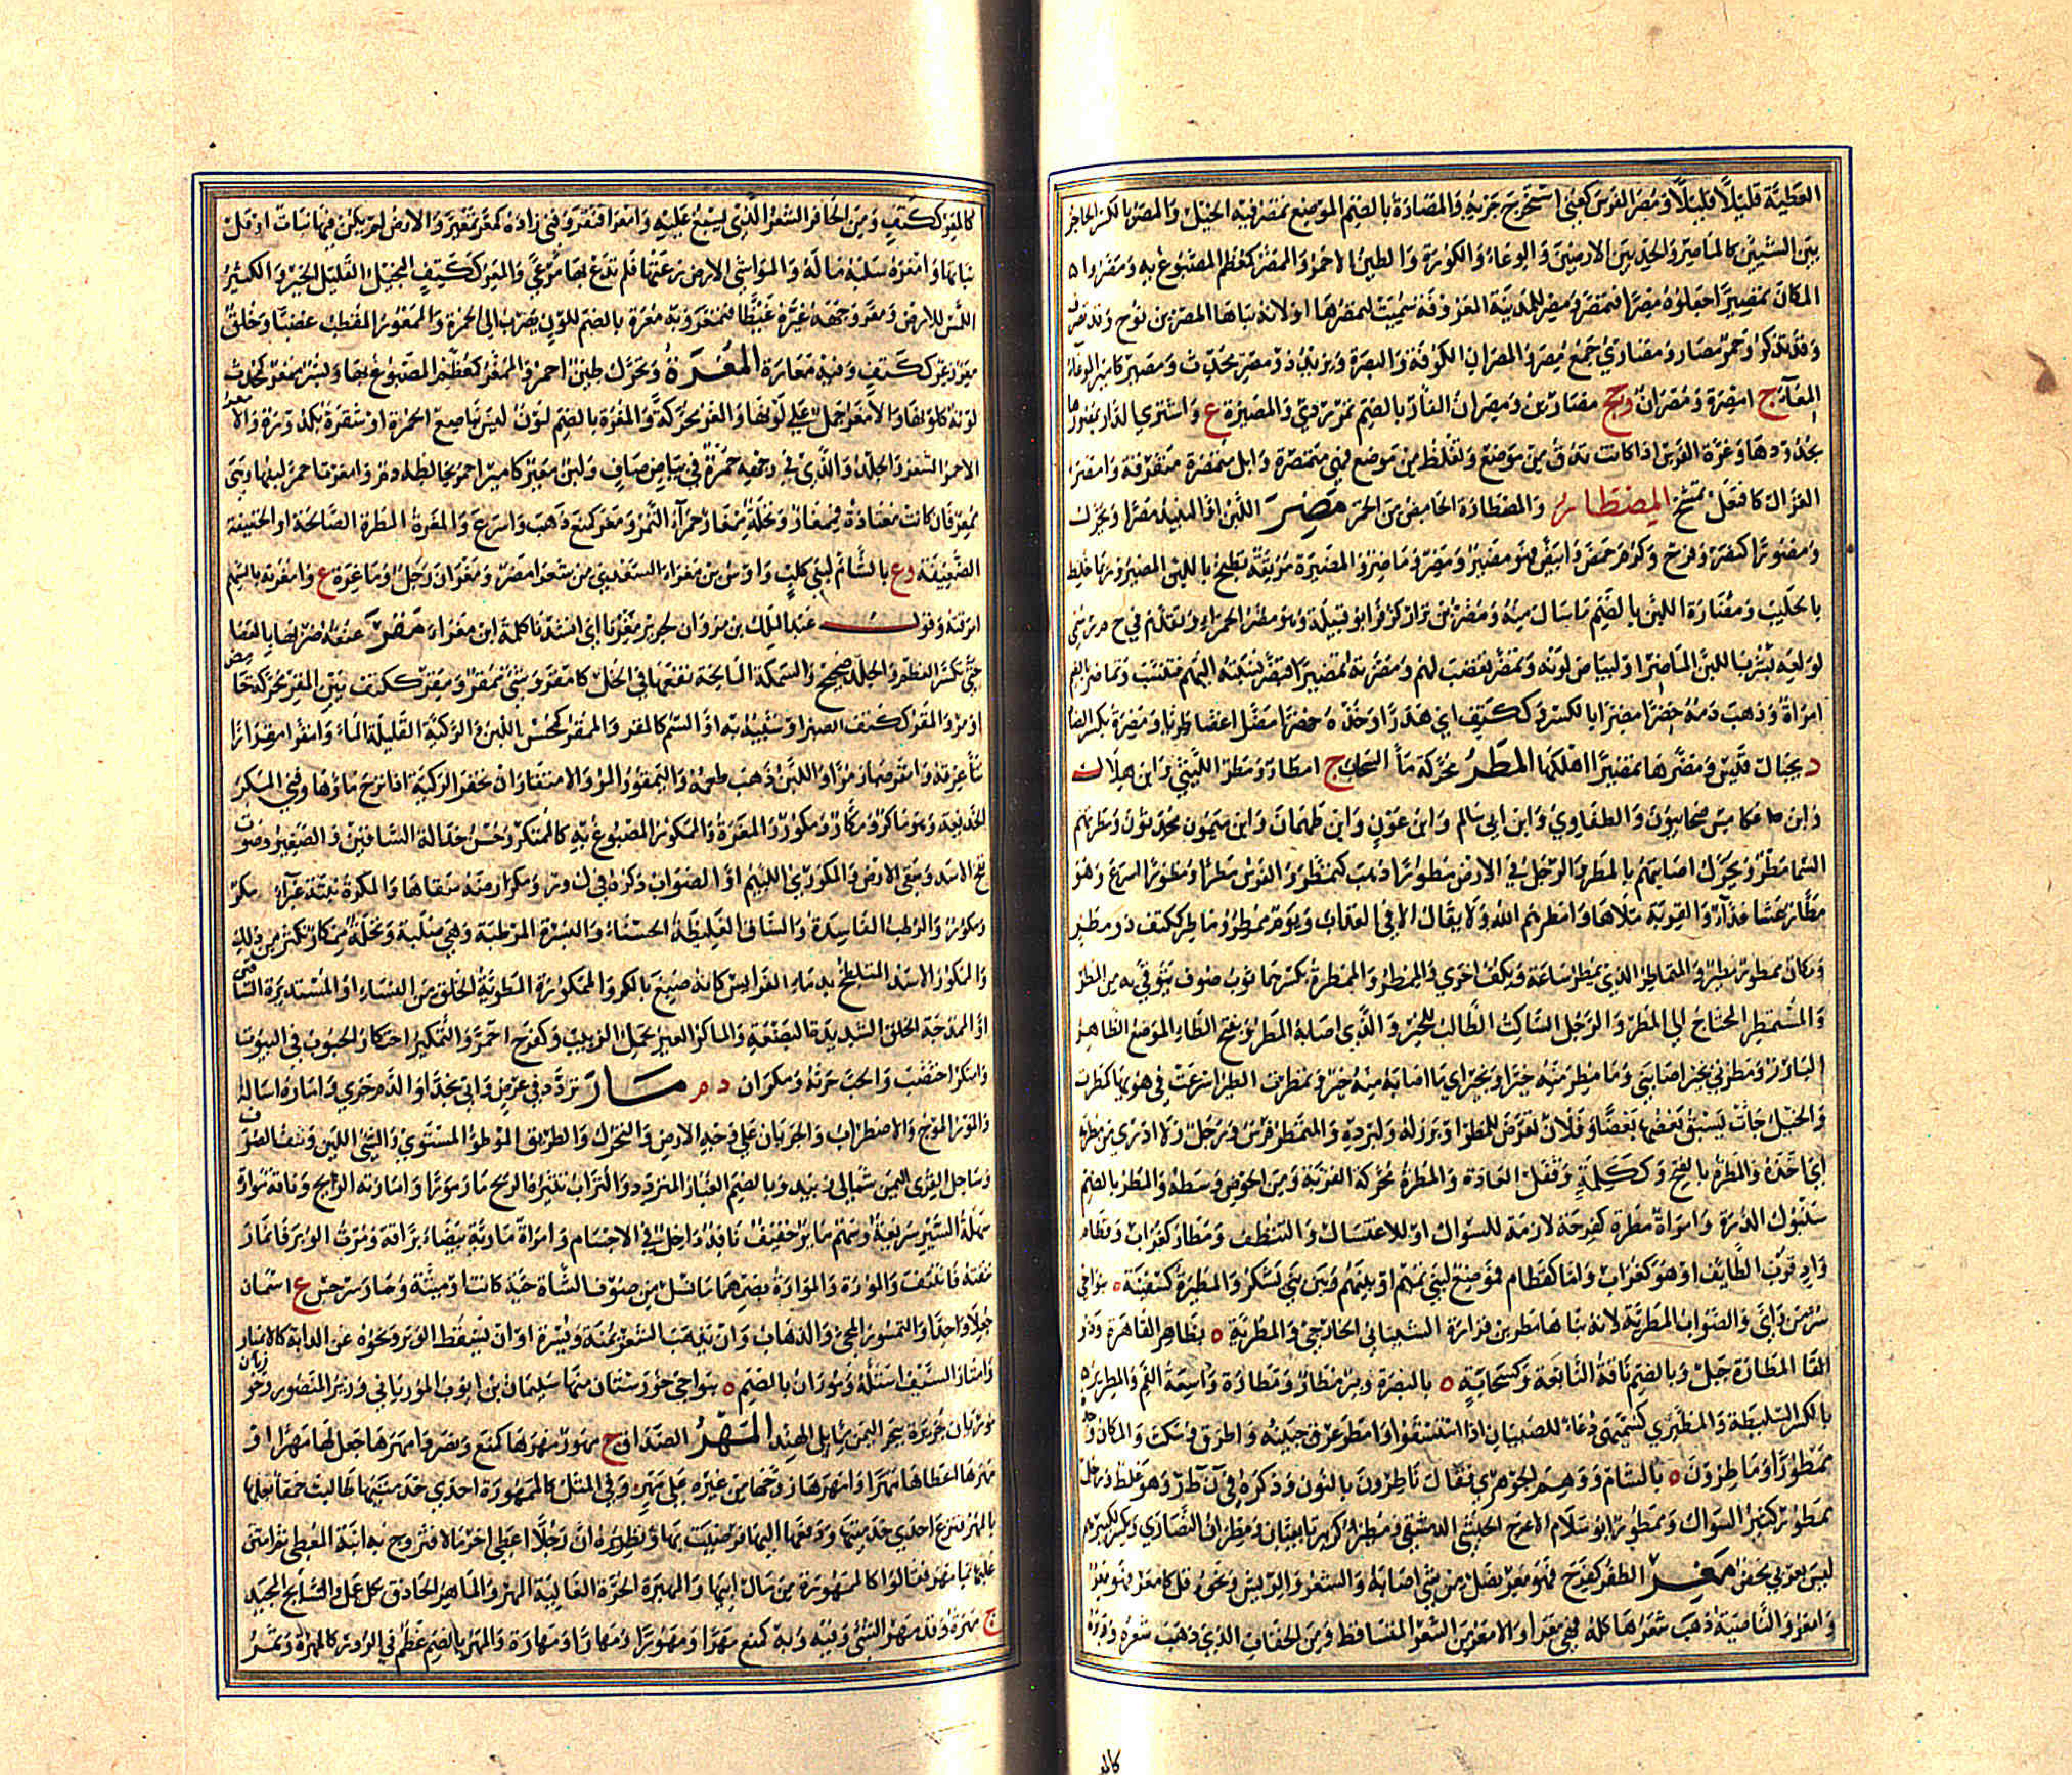 العَطِيَّة قليلًا قليلًا ومُصِرَ الفرس كعُنِيَ استُخرِجَ جَرْيه والمُصَارَة بالضم الموضع تُمصَر فيه الخيل والمِصر بالكسر الحاجز
بين الشيئين كالماصر والحد بين الارضين والوعاء والكورة والطين الاحمر والممصَّر كمعظم المصبوغ به ومصّروا
المكان تمصيرا جعلوه مصرا فتمصّر ومصر للمدينة المعروفة سُمّيت لتمصّرها او لانه بناها المصر بن نوح وقد تصرف
وقد تذكر وحُمُر مصار ومصاري جمع مصري والمصران الكوفة والبصرة ويزيد ذو مصر محدث ومصير كامير
المعا ج امصرة ومصران وجج مصارين ومصران الفار بالضم تمر ردي والمصيرة ع واشترى الدار بمصورها
بحدودها وغرة الفرس اذا كانت تدق من موضع وتغلظ من موضع فهي متمصرة وابل متمصرة متفرقة وامصر
الغزل كافتعل تمسّخ المصطار والمصطارة الحامض من الخمر مضر اللبن او النبيذ مضرا ويحرك
ومضورا كنصر وفرح وكرم حمض وابيض فهو مضير ومضر وماضر والمضيرة مريقة تطبخ باللبن المضير وربما خلط
بالحليب ومضارة اللبن بالضم ما سال منه ومضر بن نزار كزفر ابو قبيلة وهو مضر الحمراء وتقدم في ح م ر سمي
لولعه بشرب اللبن الماضر او لبياض لونه وتمضر تغضب لهم ومضرته تمضيرا فتمضر نسبته اليهم فتنسب وتماضر بالضم
امراة وذهب دمه خضرا مضرا بالكسر وككتف اي هدرا وخذه خضرا مضرا اي غضا طريا ومضرة بكسر الضاد
د بجبال قيس ومضّرها تمضيرا اهلكها المطر محركة ماء السحاب ج امطار ومطر الليثي وابن هلال
وابن عكامس صحابيون والطفاوي وابن ابي سالم وابن عوف وابن طهمان وابن ميمون محدثون ومطرتهم
السما مطرا ويحرك اصابتهم بالمطر والرجل في الارض مطورا ذهب كتمطر والفرس مطرا ومطورا اسرع وهو
مطار عداء والقربة ملاها وامطرهم الله ولا يقال الا في العذاب ويوم ممطر وماطر ككتف ذو مطر
ومكان ممطور ومطير والمتماطر الذي يمطر ساعة ويكف اخرى والممطر والممطرة بكسرهما ثوب صوف يتوقى به من المطر
والمستمطر المحتاج الى المطر والرجل الساكت الطالب للخير والذي اصابه المطر وبفتح الطاء الموضع الظاهر
البارز ومطرني بخير اصابني وما مطر منه خيرا وبخير اي ما اصابه منه خير وتمطرت الطير اسرعت في هويها كمطرت
والخيل جات يسبق بعضها بعضا وفلان تعرض للمطر او برز له ولبرده والمتمطر فرس ورجل ولا ادري من مطر به
اي اخذه والمطرة بالفتح وككلمة وقفل العادة والمطرة محركة القربة ومن الحوض وسطه والمطر بالضم
سنبول الذرة وامراة مطرة كفرحة لازمة للسواك او للاغتسال والتنظف ومطار كغراب وقطام
واد قرب الطايف او هو كغراب واما كقطام فموضع لبني تميم او بينهم وبين بني يشكر والمطيرة كسفينة ه بنواحي
سر من راى والصواب المطرية لانه بناها مطر بن فزارة الشيباني الخارجي والمطرية ه بظاهر القاهرة وذو
المطارة جبل وبالضم ناقة النابغة وكسحابة ه بالبصرة وبير مطار ومطارة واسعة الفم والمطرير
بالكسر السليطة والمطيري كسميهى دعاء للصبيان اذا استسقوا وامطر عرق جبينه واطرق وسكت والمكان وجده
ممطورا وماطرون ه بالشام ووهم الجوهري فقال ناطرون بالنون وذكره في ن ط ر وهو غلط ورجل
ممطور كثير السواك وممطور ابو سلام الاعرج الحبشي الدمشقي ومطير كزبير تابعيان ومطران النصارى ويكسر لكبيرهم
ليس بعربي محض معر الظفر كفرح فهو معر نصل من شي اصابه والشعر والريش ونحوه قل كامعر فهو معر
وامعر والناصية ذهب شعرها كله فهي معراء والامعر من الشعر المتساقط ومن الخفاف الذي ذهب شعره ووبره
كالمـ
كالمعر ككتف ومن الحافر الشعر الذي يسبغ عليه وامعر افتقر وفني زاده كمعر تمعيرا والارض لم يكن فيها نبات او قل
نباتها وامعره سلبه ماله والمواشي الارض رعتها فلم تدع بها مرعى والمعر ككتف البخيل القليل الخير والكثير
اللمس للارض ومعر وجهه غيره غيظا فتمعر وبه معرة بالضم للون يضرب الى الحمرة والممعور المقطب غضبا وخلق
معر زعر ككتف وفيه معارة المغرة ويحرك طين احمر والممغر كمعظم المصبوغ بها وبسر ممغر كمحدث
لونه كلونها والامغر جمل على لونها والمغر محركة والمغرة بالضم لون ليس بناصع الحمرة او شقرة بكدرة والامغر
الاحمر الشعر والجلد والذي في وجهه حمرة في بياض صاف ولبن مغير كامير احمر يخالطه دم وامغرت احمر لبنها وهي
ممغر فان كانت معتادة فممغار ونخلة ممغار حمراء التمر ومغر كمنع ذهب واسرع والمغرة المطرة الصالحة او الخفيفة
الضعيفة و ع بالشام لبني كلب واوس بن مغراء السعدي من شعراء مضر ومغران رجل وماغرة ع وامغرته بالسهم
امرقته وقول عبد الملك بن مروان لجرير مغرنا اي انشدنا كلمة ابن مغراء مقر عنقه ضربها بالعصا
حتى تكسر العظم والجلد صحيح والسمكة المالحة نقعها في الخل كامقر وشئ ممقر ومقر ككتف بين المقر محركة حامض
او مر والمقر ككتف الصبر او شبيه به او السم كالمقر والممقر كمحسن اللبن والركية القليلة الماء وامقر امقرارا
نتأ عرقه وامقر صار مرا واللبن ذهب طعمه واليمقور المر والامتقار ان تحفر الركية اذا نزح ماؤها وفني المكر
الخديعة وهو ماكر ومكار ومكور والمغرة والممكور المصبوغ به كالممتكر وحسن خدالة الساقين والصفير وصوت
نفخ الاسد وسقي الارض والمكوري اللئيم او الصواب ذكره في ك و ر ومكر ارضه سقاها والمكرة نبتة غبراء ج مكر
ومكور والرطبة الفاسدة والساق الغليظة الحسناء والبسرة المرطبة وهي صلبة ونخلة ممكار تكثر من ذلك
والممكور الاسد المتلطخ بدماء الفرايس كانه صبغ بالمكر والممكورة المطوية الخلق من النساء او المستديرة الساقين
او المدمجة الخلق الشديدة البضعة والماكر العير تحمل الزبيب وكفرح احمر والتمكير احتكار الحبوب في البيوت
وامتكر اختضب والحب حرثه ومكران د م مار تردد في عرض واتى نجدا والدم جرى واماره اساله
والمور الموج والاضطراب والجريان على وجه الارض والتحرك والطريق الموطو المستوي والشئ اللين ونتف الصوف
وساحل لقرى اليمن شمالي زبيد وبالضم الغبار المتردد والتراب تثيره الريح مار مورا وامارته الريح وناقة موارة
سهلة السير سريعة وسهم ماير خفيف نافذ داخل في الاجسام وامراة مارية بيضاء براقة ومرت الوبر فانمار
نتفته فانتتف والمورة والموارة بضمهما ما نسل من صوف الشاة حية كانت او ميتة ومار سرجس ع اسمان
جعلا واحدا والتمور المجئ والذهاب وان يذهب الشعر يمنة ويسرة او ان يسقط الوبر ونحوه عن الدابة كالانميار
وامتار السيف استله وموران بالضم ه بنواحي خوزستان منها سليمان بن ابوب المورياني وزير المنصور وخور
موريان جزيرة ببحر اليمن مما يلي الهند المهر الصداق ج مهور مهرها كمنع ونصر وامهرها جعل لها مهرا او
مهرها اعطاها مهرا وامهرها زوجها من غيره على مهر وفي المثل كالممهورة احدى خدمتيها طالبت حمقاء بعلها
بالمهر فنزع احدى خدمتيها ودفعها اليها فرضيت بها ونظيره ان رجلا اعطى اخر مالا فتزوج به ابنة المعطي ثم امتن
عليها بما مهرها فقالوا كالممهورة من مال ابيها والمهيرة الحرة الغالية المهر والماهر الحاذق بكل عمل والسابح المجيد
ج مهرة وقد مهر الشئ وفيه وبه كمنع مهرا ومهورا ومهارا ومهارة والمهر بالضم عظم في الزور كالمهرة وثمر